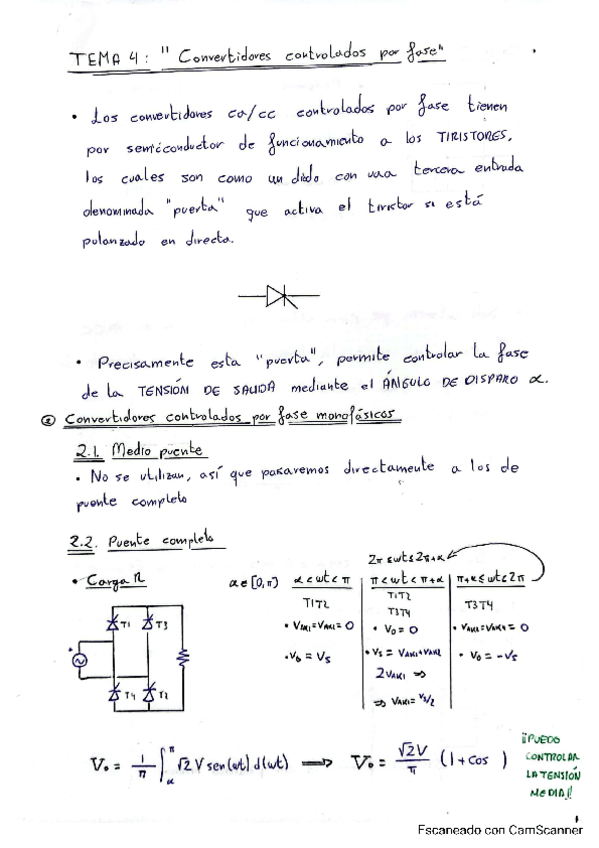 TEMA 4: " Convertidores controlados por fase"
• Los convertidores ca/cc controlados por fase tienen
por semiconductor de funcionamiento a los TIRISTORES,
los cuales son como un diodo con una tercera entrada
denominada "puerta" que activa el tiristor si está
polarizado en directa.
• Precisamente esta "puerta", permite controlar la fase
de la TENSIÓN DE SALIDA mediante el ÁNGULO DE DISPARO α.
② Convertidores controlados por fase monofásicos
2.1. Medio puente
• No se utilizan, así que pasaremos directamente a los de
puente completo
2.2. Puente completo
2π ≤ wt ≤ 2π+α
• Carga R
α ∈ [0,π] α < wt < π π < wt < π+α π+α ≤ wt ≤ 2π
T1T2 T1T2 T3T4
T3T4
T1 T3
• VAK1=VAK2=0 • Vo = 0 • VAK3=VAK4= 0
• Vo = Vs • Vs = VAK1+VAK2 • Vo = -Vs
T4 T2
2VAK1 ⇒
⇒ VAK1= Vs/2
Vo = 1/π ∫απ √2 V sen(wt) d(wt) ⟹ Vo = √2V/π (1+cos )
¡¡PUEDO
CONTROLAR
LA TENSIÓN
MEDIA!!
1
Escaneado con CamScanner